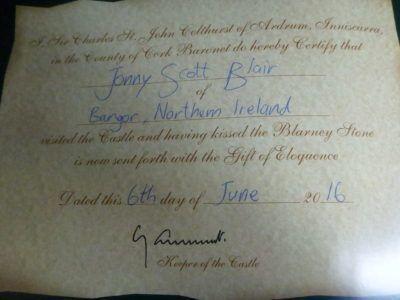 I Sir Charles St. John Colthurst of Ardrum, Inniscarra,
in the County of Cork Baronet do hereby Certify that
Jonny Scott Blair
of
Bangor, Northern Ireland
visited the Castle and having kissed the Blarney Stone
is now sent forth with the Gift of Eloquence
Dated this 6th day of June 2016
Keeper of the Castle